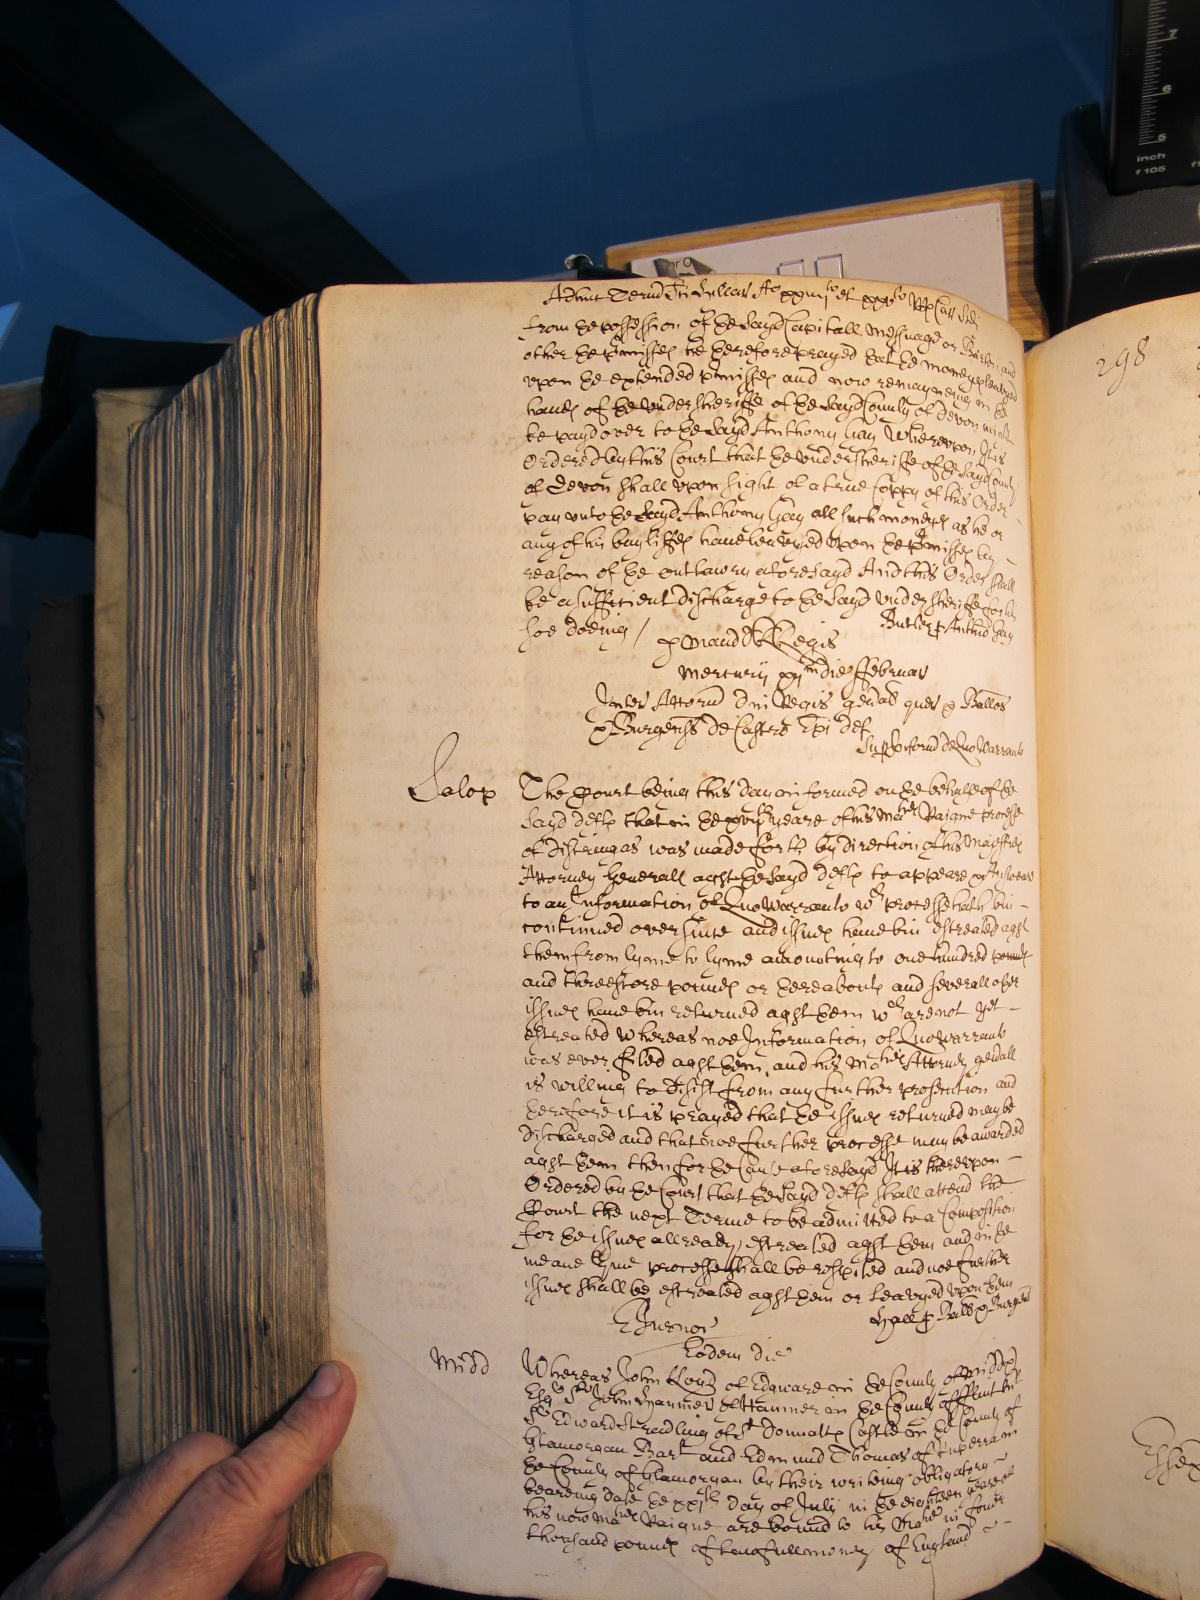 from the possession of the sayd Capitall Messuage or Barton and
other the pmisses he therefore prayed that the moneys leavyed
upon the extended pmisses and now remayneing in the
hands of the undersheriffe of the sayd County of Devon might
be payd over to the sayd Anthony Gay Whereupon It is
Ordered by this Court that the undersheriffe of the sayd County
of Devon shall upon sight of a true Coppy of this Order
pay unto the sayd Anthony Gay all such moneys as he or
any of his bayliffes have leavyed upon the pmisses by
reason of the outlawry aforesayd And this Order shall
be a sufficient discharge to the sayd undersheriffe for his
soe doeing / Butler p Anthio Gay
Regis
Mercurij die Februar
Inter Attorn Dni Regis genal quer & Ballos
& Burgenss de Castro Epi def
Sup Inford de Quo Warranto
Salop The Court being this day informed on the behalfe of the
sayd defts that in the yeare of his Ma ties Raigne processe
of distringas was made forth by direction of his Majesties
Attorney Generall agst the sayd defts to appeare & Answeare
to an Information of Quo Warranto wch processe hath bin
continued over since and issues have bin estreated agst
them from tyme to tyme amounting to one hundred pounds
and threescore pounds or thereabouts and severall other
issues have bin returned agst them wch are not yet
estreated Whereas noe Information of Quo Warranto
was ever filed agst them, and his Ma ties Attorney genall
is willing to desist from any further prosecution and
therefore it is prayed that the issues returned may be
discharged and that noe further processe may be awarded
agst them then for the Cause aforesayd It is thereupon
Ordered by the Court that the sayd defts shall attend the
Court the next Terme to be admitted to a Composition
for the issues allready estreated agst them and in the
meane tyme processe shall be respited and noe further
issues shall be estreated agst them or leavyed upon them
Hall p Ball & Burgens
Eodem die
Midd Whereas John Lloyd of Edgware in the County of Middx
Esq Sr John Hanmer of Hanmer in the County of Flint
Sr Edward Stradling of St Donnatts Castle in the County of
Glamorgan Bart and Edmund Thomas of in
the County of Glamorgan by their writing obligatory
beareing date the xxjth day of July in the eighteen yeare of
his now Maties Raigne are bound to his Matie in fower
thousand pounds of lawfull money of England
298
Essex
7
6
5
inch
f 105